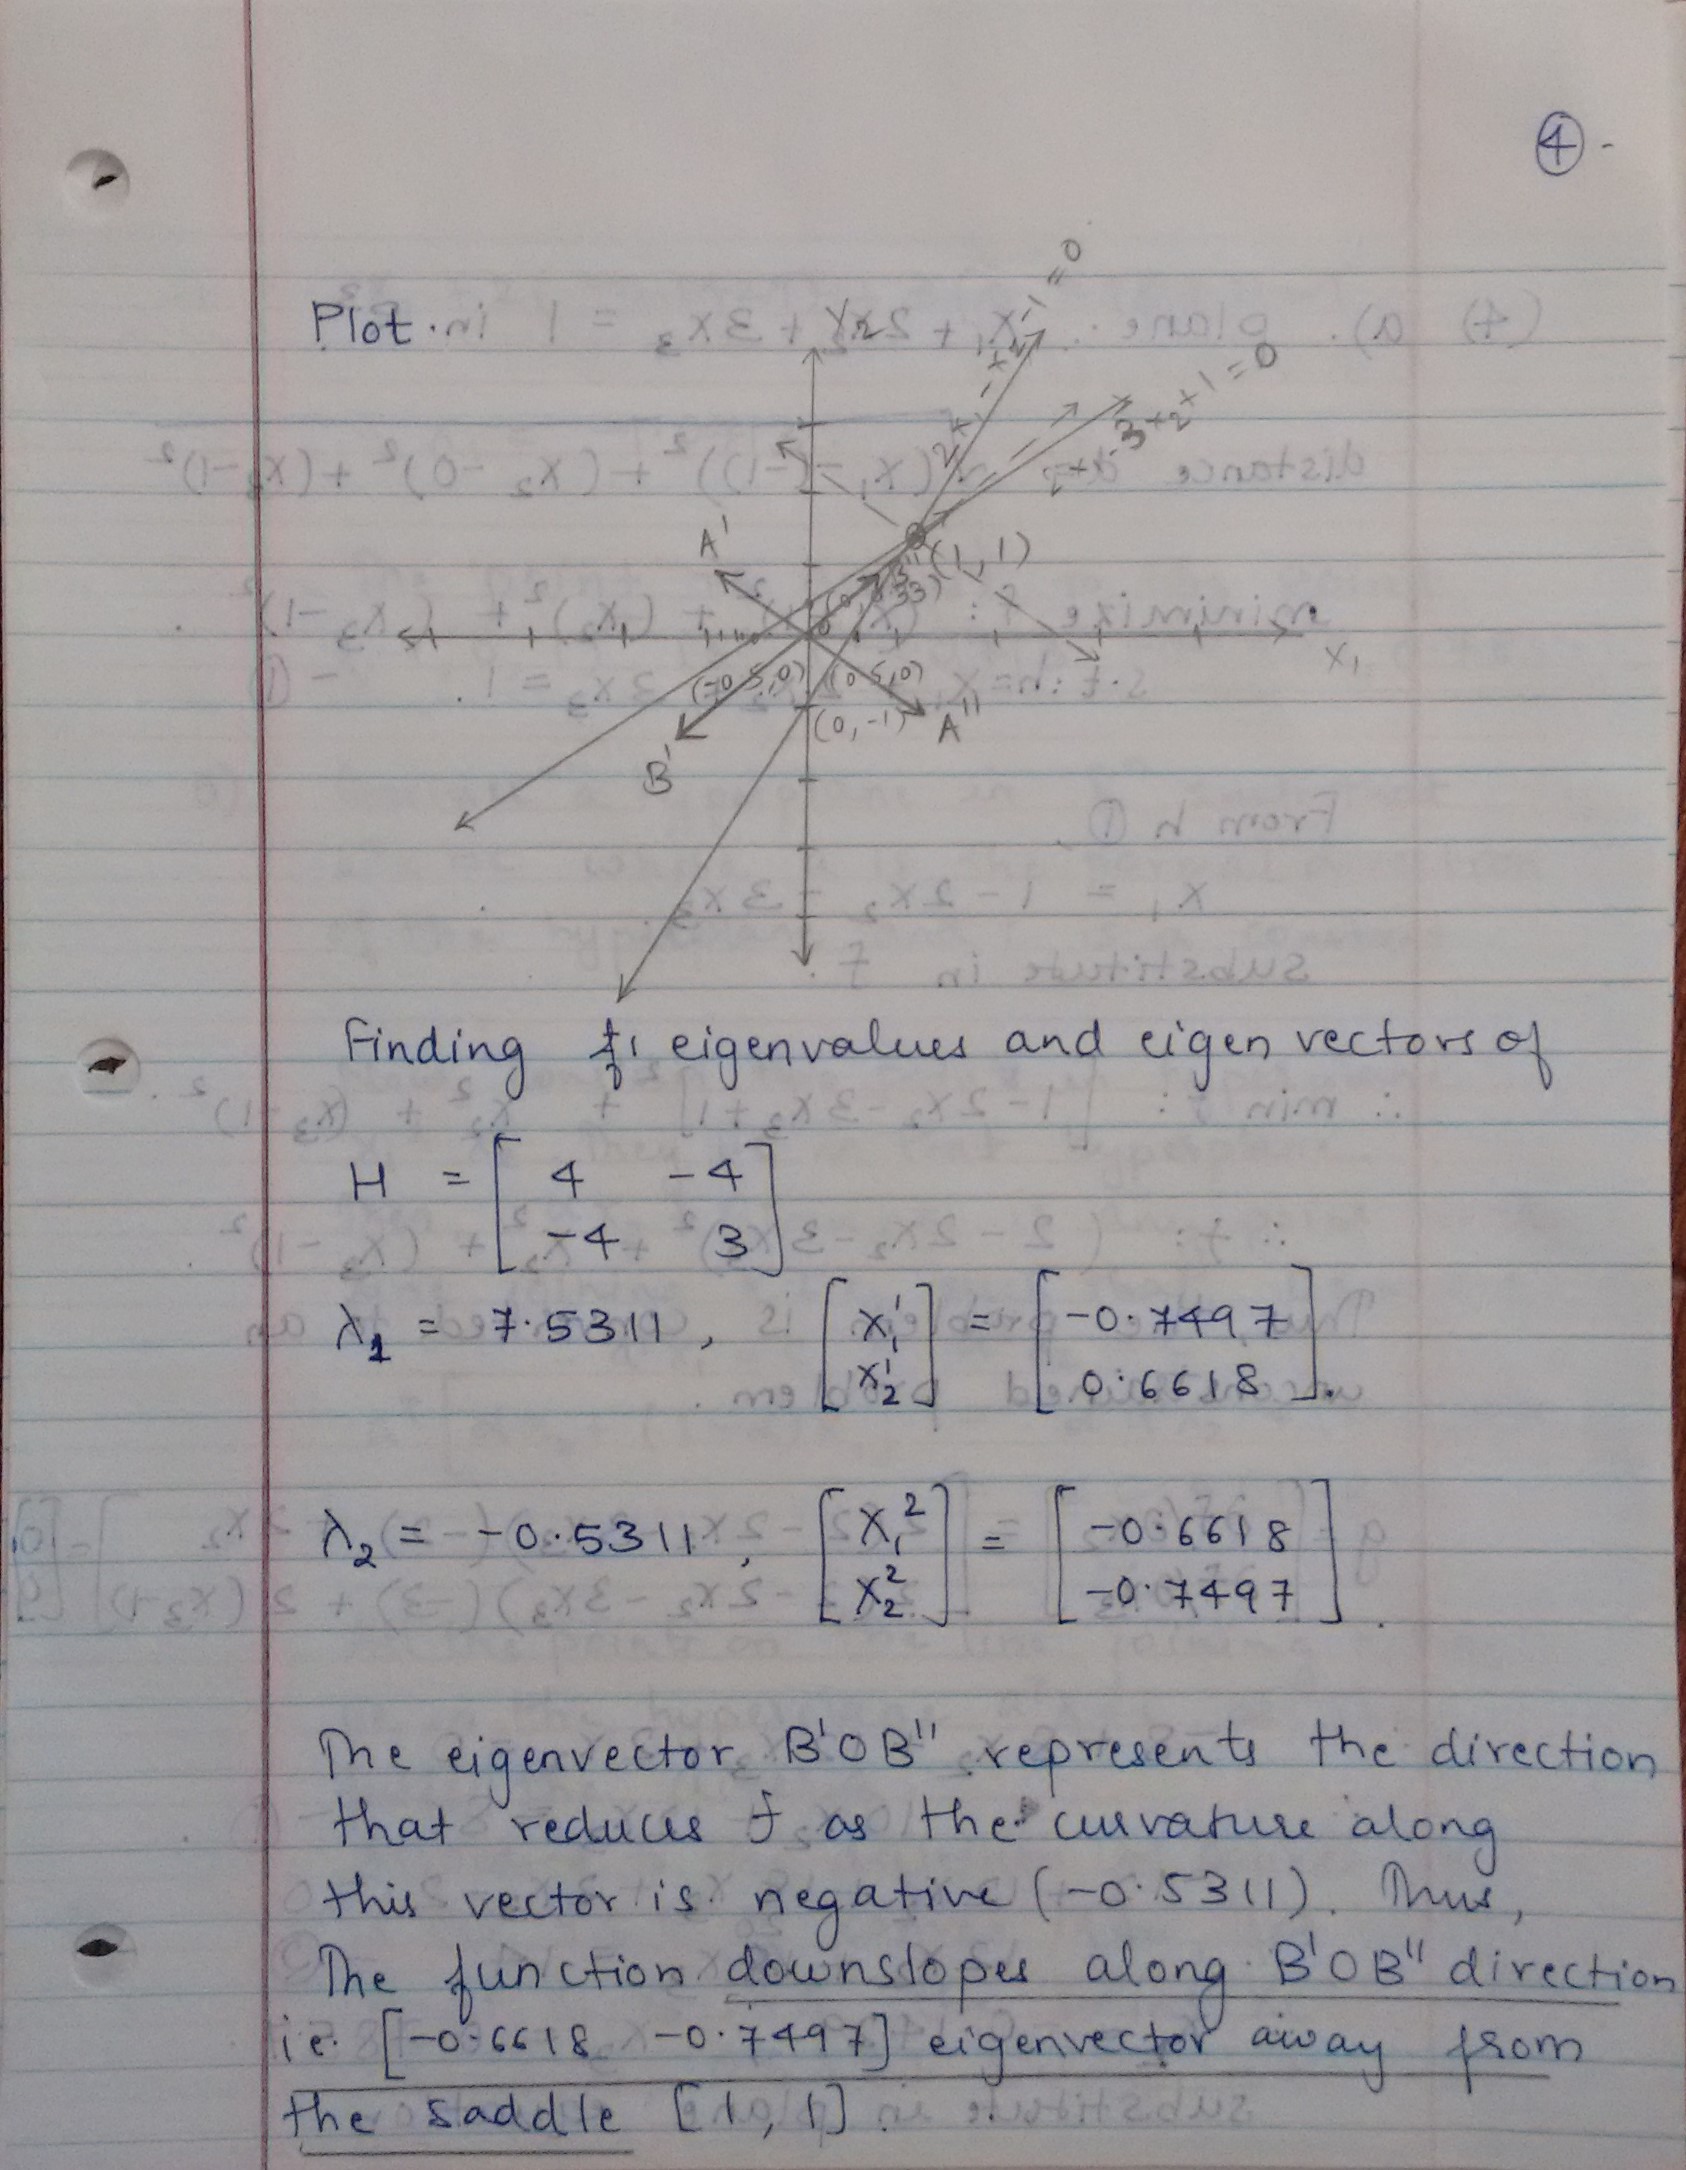 4
Plot.
x2
2x1 - x2 - 1 = 0
-3x2 + 1 = 0
A'
(1, 1)
B"
(0, 0.33)
0
x1
(-0.5, 0) (0.5, 0)
(0, -1)
A"
B'
Finding eigenvalues and eigen vectors of
H = [ 4 -4
-4 3 ]
λ1 = 7.5311, [ x1' = [ -0.7497
x2' ] 0.6618 ].
λ2 = -0.5311, [ x1² = [ -0.6618
x2² ] -0.7497 ].
The eigenvector B'OB" represents the direction
that reduces f as the curvature along
this vector is negative (-0.5311). Thus,
The function downslopes along B'OB" direction
i.e. [-0.6618 -0.7497] eigenvector away from
the saddle [1, 1].